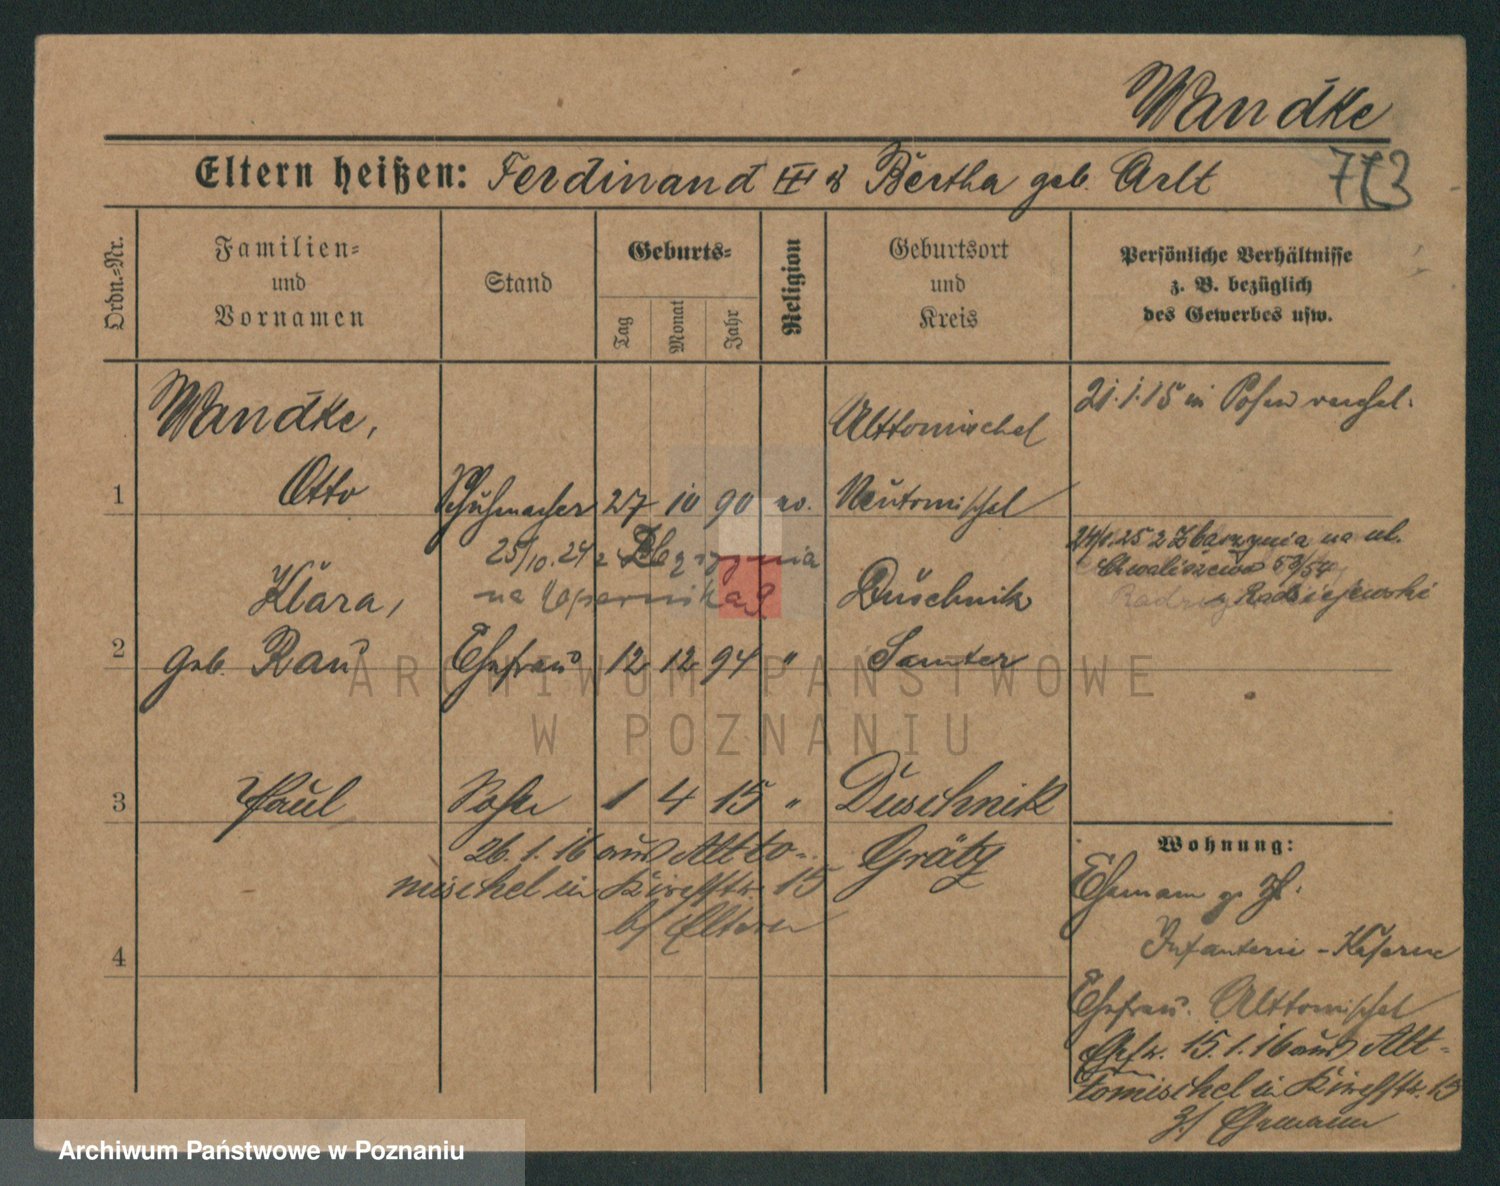 Wandke
Eltern heißen: Ferdinand III & Bertha geb. Arlt
713
Ordn.=Nr.
Familien=
und
Vornamen
Stand
Geburts=
Tag
Monat
Jahr
Religion
Geburtsort
und
Kreis
Persönliche Verhältnisse
z. B. bezüglich
des Gewerbes usw.
Wandke,
Otto
1
Schuhmacher 27 10 90 ev.
Alttomischel
Neutomischel
21.1.15 in Posen verehel.
25/10.24 z Zbąszynia
na
Klara,
2
geb. Rau
Ehefrau 12 12 94 "
Duschnik
Samter
24/1.25 z Zbąszynia na ul.
Chwaliszewo 53/54
Radziejewski
3
Paul
Sohn 1 4 15 "
Duschnik
Grätz
26.1.16 aus Altto-
mischel in 15
b/ Eltern
4
Wohnung:
Ehemann z. Zt.
Infanterie-Kaserne
Ehefrau. Alttomischel
Ehefr. 15.1.16 aus Alt-
tomischel in 15
z/ Ehemann
ARCHIWUM PAŃSTWOWE
W POZNANIU
Archiwum Państwowe w Poznaniu